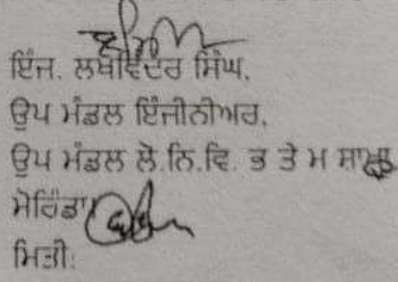 ਇੰਜ. ਲਖਵਿੰਦਰ ਸਿੰਘ,
ਉਪ ਮੰਡਲ ਇੰਜੀਨੀਅਰ,
ਉਪ ਮੰਡਲ ਲੋ.ਨਿ.ਵਿ. ਭ ਤੇ ਮ ਸ਼ਾਖਾ
ਮੋਰਿੰਡਾ
ਮਿਤੀ: